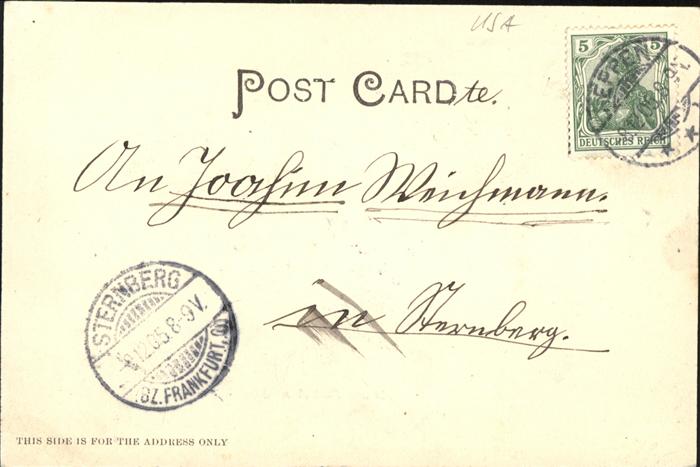 USA
POST CARDte.
5 5
DEUTSCHES REICH
An Joachim Weichmann.
in Sternberg.
STERNBERG
12.05.8-9V.
(BZ. FRANKFURT, O)
THIS SIDE IS FOR THE ADDRESS ONLY